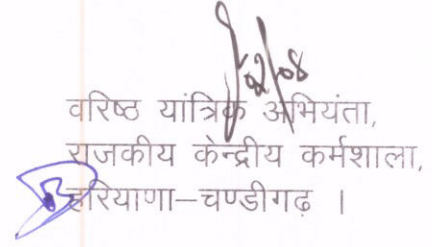 वरिष्ठ यांत्रिक अभियंता,
राजकीय केन्द्रीय कर्मशाला,
हरियाणा–चण्डीगढ़ ।